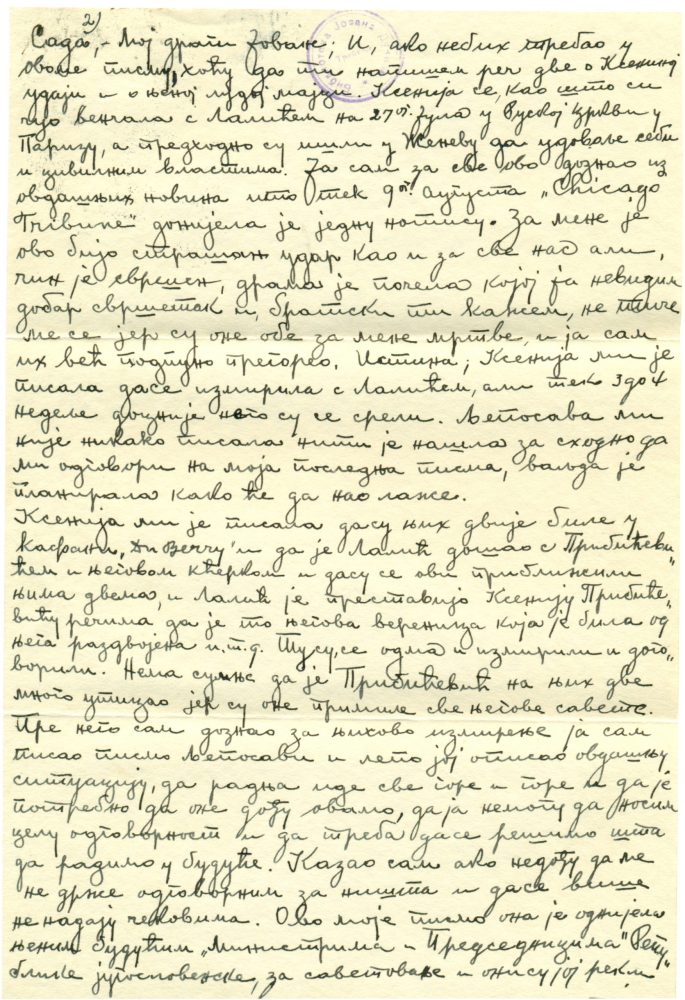 2)
Сада,- мој драги Јоване; И, ако небих требао у
овоме писму, хоћу да ти напишем реч две о Ксенијној
удаји и о њеној лудој мајци. Ксенија се, као што си
чуо венчала с Лалићем на 27 ог. Јула у Руској цркви у
Паризу, а предходно су ишли у Женеву да удовоље себи
и цивилним властима. Ја сам за све ово дознао из
овдашњих новина што тек 9 ог. Августа „Chicago
Tribune" донијела је једну нотису. За мене је
ово бијо страшан удар као и за све нас али,
чин је свршен, драма је почела којој ја невидим
добар свршетак и, братски ти кажем, не тиче
ме се јер су оне обе за мене мртве, и ја сам
их већ подпуно прегорео. Истина; Ксенија ми је
писала дасе измирила с Лалићем, али тек 3 до 4
недеље доцније него су се срели. Љепосава ми
није никако писала нити је нашла за сходно да
ми одговори на моја последња писма, ваљда је
планирала како ће да нас лаже.
Ксенија ми је писала дасу њих двије биле у
кафани „Du Berry" и да је Лалић дошао с Прибићеви„
ћем и његовом кћерком и дасу се ови приближили
њима двема, и Лалић је преставијо Ксенију Прибиће„
вићу речима да је то његова вереница која је била од
њега раздвојена и.т.д. Ту су се одма и измирили и дого„
ворили. Нема сумње да је Прибићевић на њих две
много утицао јер су оне примиле све његове савете.
Пре него сам дознао за њихово измирење ја сам
писао писмо Љепосави и лепо јој описао овдашњу
ситуацију, да радња иде све горе и горе и да је
потребно да оне дођу овамо, да ја немогу да носим
целу одговорност и да треба дасе решимо шта
да радимо у будуће. Казао сам ако недођу да ме
не држе одговорним за ништа и дасе више
не надају чековима. Ово моје писмо она је однијела
њеним будућим „Министрима и Председницима" Репу„
блике југословенске, за саветовање и они су јој рекли